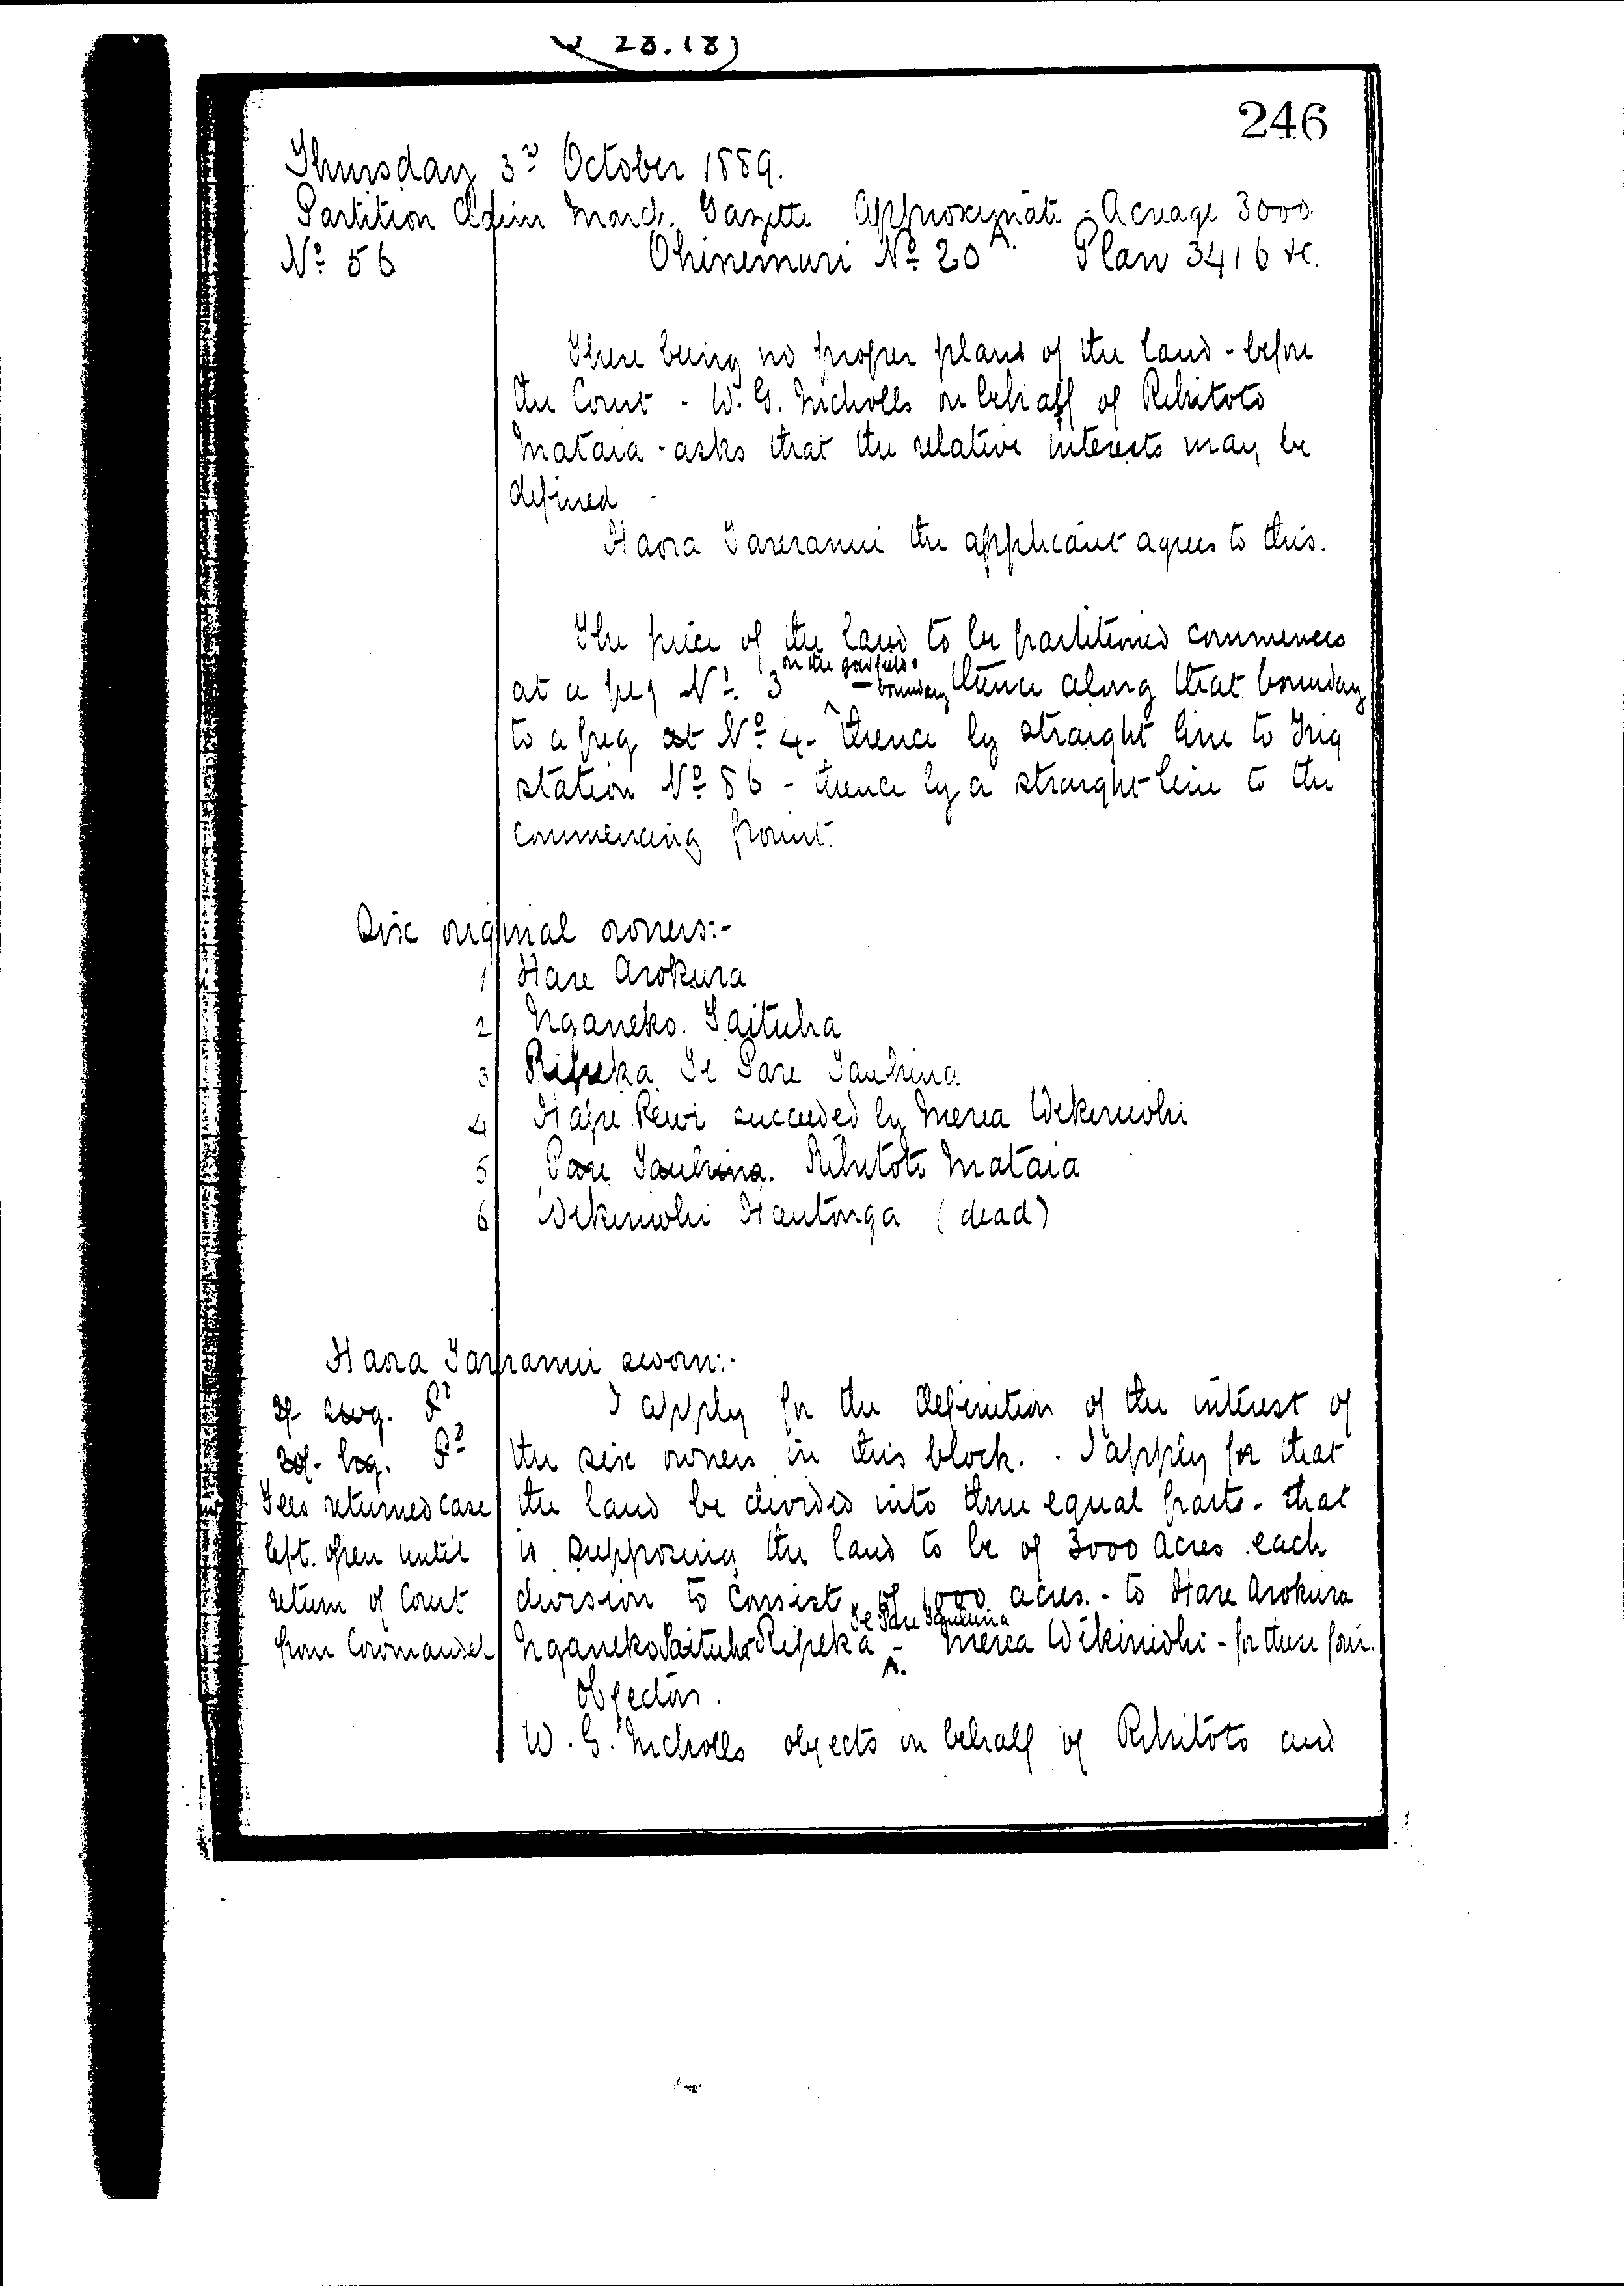 28.(8)
246
Thursday 3rd October 1889.
Partition Claim March Gazette Approximate Acreage 3000
No 56 Ohinemuri No 20A. Plan 3416 &c.
There being no proper plans of the land - before
the Court - W. G. Nicholls on behalf of Rihitoto
Mataia - asks that the relative interests may be
defined -
Haora Tareranui the applicant agrees to this.
The piece of the land to be partitioned commences
at a peg No. 3 on the goldfields boundary thence along that boundary
to a peg at No 4 - thence by straight line to Trig
station No 86 - thence by a straight line to the
commencing point.
Six original owners:-
1 Hare Arokura
2 Nganeko Taituha
3 Ripeka Te Pare Tauhina
4 Hape Rewi succeeded by Merea Wikiriwhi
5 Pare Tauhina. Rihitoto Mataia
6 Wikiriwhi Hautonga (dead)
Haora Tareranui sworn:-
I apply for the definition of the interest of
the six owners in this block. I apply for that
Fees returned case the land be divided into three equal parts - that
left open until is supposing the land to be of 3000 acres each
return of Court division to consist of 1000 acres. - to Hare Arokura
from Coromandel Nganeko Taituha Ripeka Te Pare Tauhina - Merea Wikiriwhi - for these four.
Objectors.
W. G. Nicholls objects on behalf of Rihitoto and